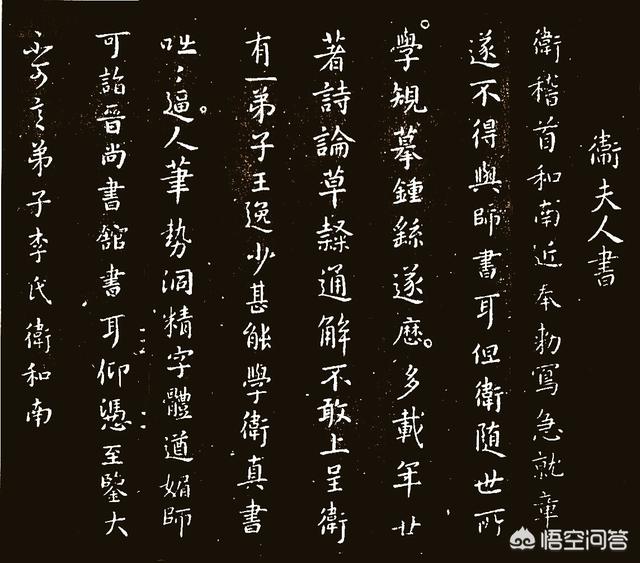 衛夫人書
衛稽首和南近奉勅寫急就章
遂不得與師書耳但衛隨世所
學規摹鍾繇遂歷多載年廿
著詩論草隸通解不敢上呈衛
有一弟子王逸少甚能學衛真書
咄〻逼人筆勢洞精字體遒媚師
可詣晉尚書舘書耳仰憑至鑒大
不可言弟子李氏衛和南
悟空问答